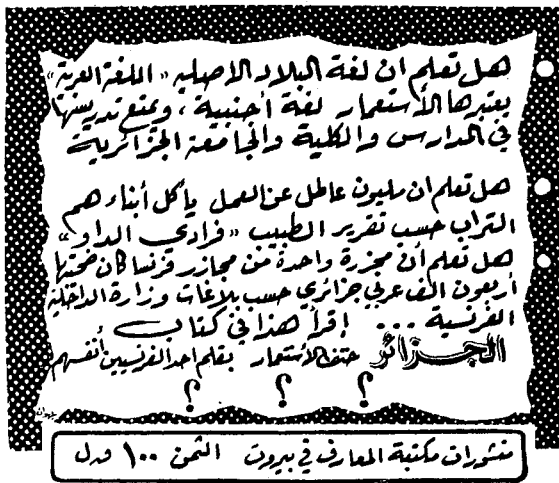 هل تعلم ان لغة البلاد الاصلية «اللغة العربية»
يعتبرها الأستعمار لغة أجنبية، ويمنع تدريسها
في المدارس والكلية والجامعة الجزائرية
هل تعلم ان مليون عاطل عن العمل يأكل أبناءهم
التراب حسب تقرير الطبيب «فرادي الداو»
هل تعلم أن مجزرة واحدة من مجازر فرنسا كان ضحيتها
أربعون الف عربي جزائري حسب بلاغات وزارة الداخلية
الفرنسية ... إقرأ هذا في كتاب
الجزائر حتف الأستعمار بقلم احد الفرنسيين أنفسهم
؟ ؟ ؟
منشورات مكتبة المعارف في بيروت الثمن ١٠٠ ق.ل